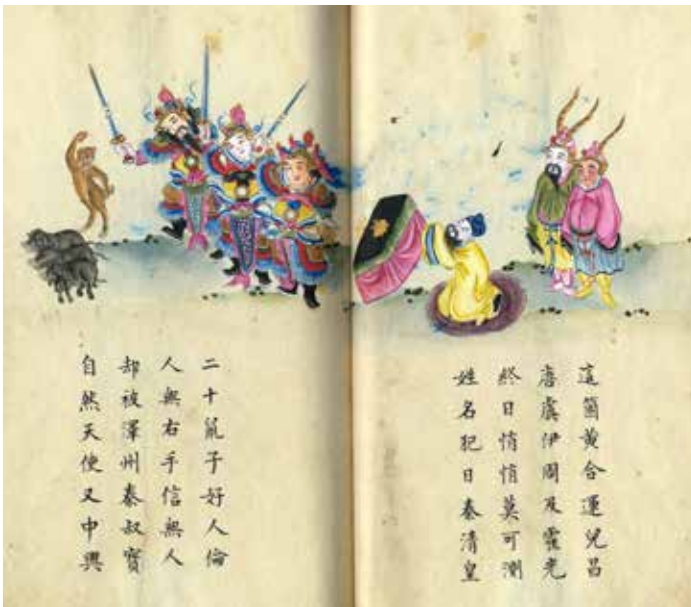 這箇黄合運兒昌
唐虞伊周及霍光
終日悄悄莫可測
姓名犯日秦清皇
二十鼠子好人倫
人無右手信無人
却被澤州秦叔寳
自然天使又中興